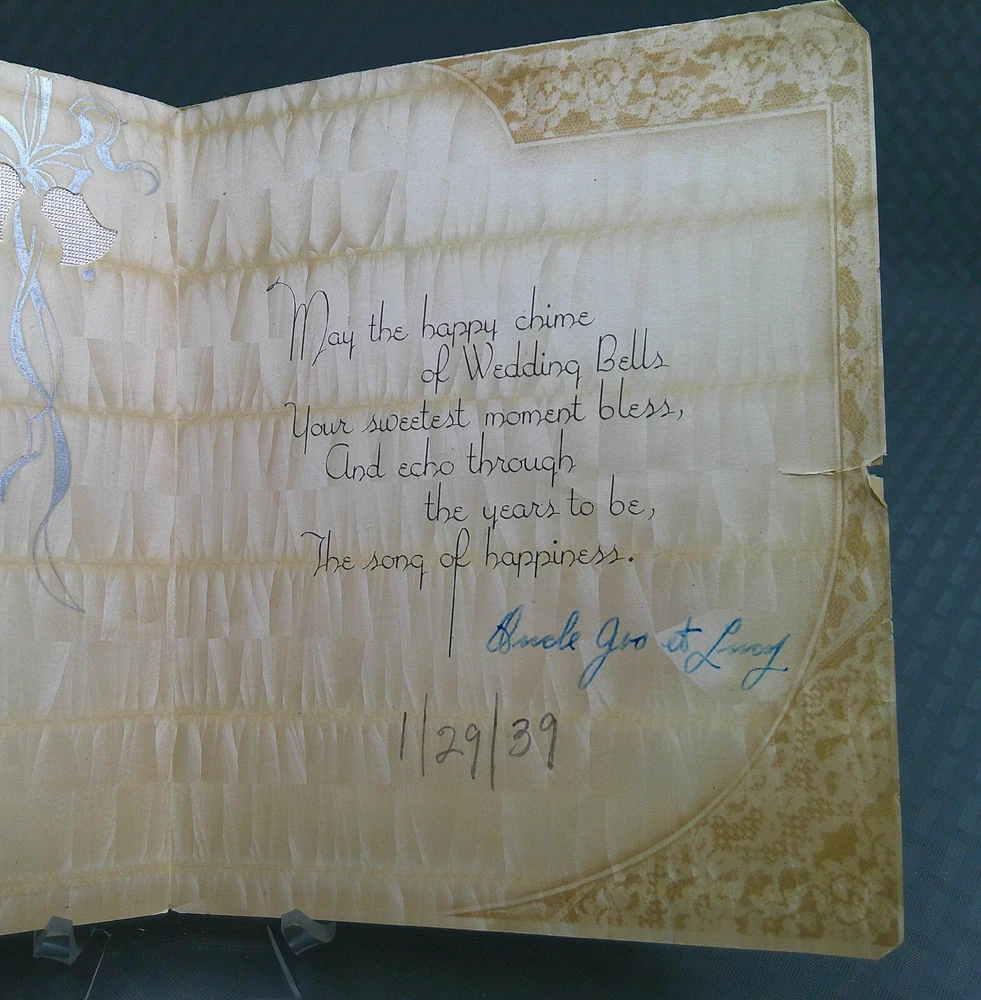 May the happy chime
of Wedding Bells
Your sweetest moment bless,
And echo through
the years to be,
The song of happiness.
Uncle Geo et Lucy
1/29/39